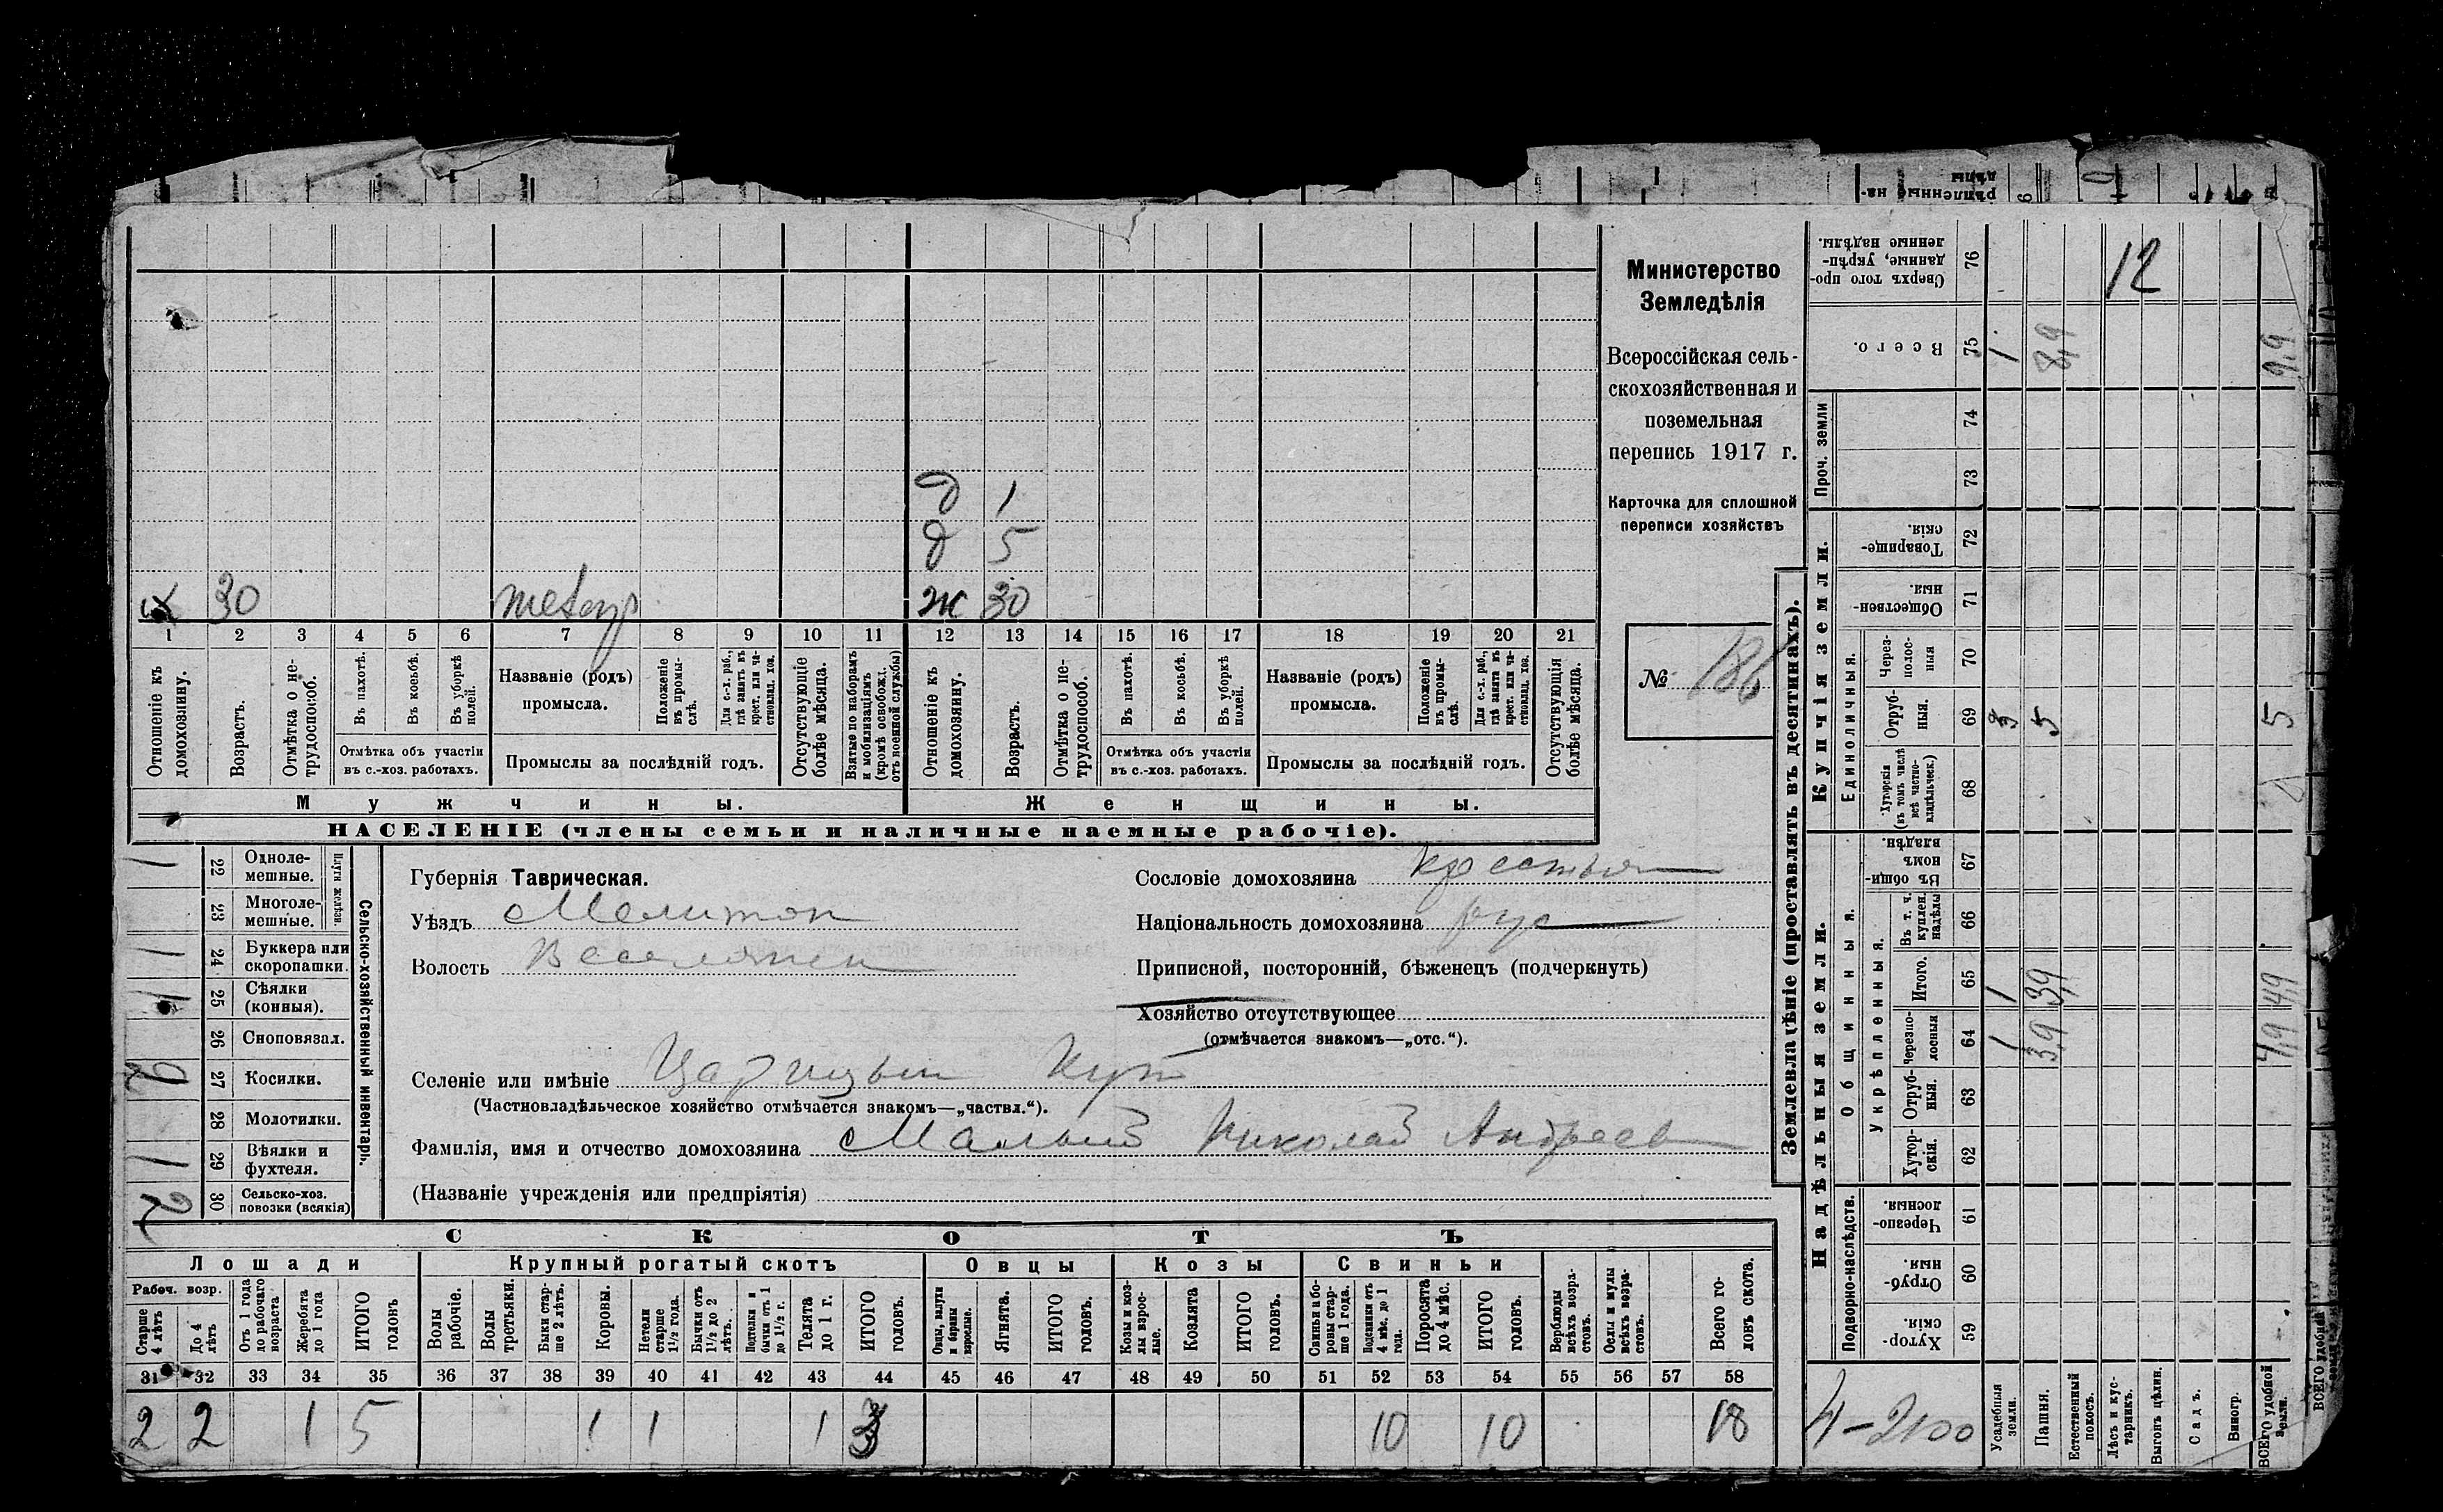 Министерство
Земледѣлія
Всероссійская сель-
скохозяйственная и
поземельная
перепись 1917 г.
Карточка для сплошной
переписи хозяйствъ
№ 186
д 1
д 5
х 30 ж 30
1 2 3 4 5 6 7 8 9 10 11 12 13 14 15 16 17 18 19 20 21
Отношеніе къ
домохозяину.
Возрастъ.
Отмѣтка о не-
трудоспособ.
Въ пахотѣ.
Въ косьбѣ.
Въ уборкѣ
полей.
Отмѣтка объ участіи
въ с.-хоз. работахъ.
Названіе (родъ)
промысла.
Положеніе
въ промы-
слѣ.
Для с.-х. раб.,
гдѣ занятъ въ
крест. или ча-
стновлад. хоз.
Промыслы за послѣдній годъ.
Отсутствующіе
болѣе мѣсяца.
Взятые по наборамъ
и мобилизаціямъ
(кромѣ освобожд.
отъ военной службы)
Отношеніе къ
домохозяину.
Возрастъ.
Отмѣтка о не-
трудоспособ.
Въ пахотѣ.
Въ косьбѣ.
Въ уборкѣ
полей.
Отмѣтка объ участіи
въ с.-хоз. работахъ.
Названіе (родъ)
промысла.
Положеніе
въ промы-
слѣ.
Для с.-х. раб.,
гдѣ занята въ
крест. или ча-
стновлад. хоз.
Промыслы за послѣдній годъ.
Отсутствующія
болѣе мѣсяца.
Мужчины. Женщины.
НАСЕЛЕНІЕ (члены семьи и наличные наемные рабочіе).
Сельско-хозяйственный инвентарь.
Плуги желѣзн
1 22 Одноле-
мешные.
23 Многоле-
мешные.
1 24 Буккера или
скоропашки.
1 25 Сѣялки
(конныя).
26 Сноповязал.
27 Косилки.
28 Молотилки.
1 29 Вѣялки и
фухтеля.
2 30 Сельско-хоз.
повозки (всякія)
Губернія Таврическая.
Уѣздъ Мелитоп
Волость Веселянск
Сословіе домохозяина крестьян
Національность домохозяина рус
Приписной, посторонній, бѣженецъ (подчеркнуть)
Хозяйство отсутствующее
(отмѣчается знакомъ—„отс.“).
Селеніе или имѣніе Царицын Кут
(Частновладѣльческое хозяйство отмѣчается знакомъ—„частвл.“).
Фамилія, имя и отчество домохозяина Малый Николай Андреев
(Названіе учрежденія или предпріятія)
СКОТЪ
Лошади Крупный рогатый скотъ Овцы Козы Свиньи
Рабоч. возр.
Старше
4 лѣтъ
До 4
лѣтъ
Отъ 1 года
до рабочаго
возраста
Жеребята
до 1 года
ИТОГО
головъ
Волы
рабочіе.
Волы
третьяки.
Быки стар-
ше 2 лѣтъ.
Коровы.
Нетели
старше
1½ года.
Бычки отъ
1½ до 2
лѣтъ.
Подтелки и
бычки отъ 1
до 1½ г.
Телята
до 1 г.
ИТОГО
головъ.
Овцы, валухи
и бараны
взрослые.
Ягнята.
ИТОГО
головъ.
Козы и коз-
лы взрос-
лые.
Козлята
ИТОГО
головъ.
Свиньи и бо-
ровы стар-
ше 1 года.
Подсвинки отъ
4 мѣс. до 1
года.
Поросята
до 4 мѣс.
ИТОГО
головъ.
Верблюды
всѣхъ возра-
стовъ.
Ослы и мулы
всѣхъ возра-
стовъ.
Всего го-
ловъ скота.
31 32 33 34 35 36 37 38 39 40 41 42 43 44 45 46 47 48 49 50 51 52 53 54 55 56 57 58
2 2 1 5 1 1 1 3 10 10 18
Землевладѣніе (проставлять въ десятинахъ).
Сверхъ того про-
данные, укрѣп-
ленные надѣлы.
76 12
Всего. 75 1 8,9 9,9
Проч. земли
74
73
Купчія земли.
Товарище-
скія.
72
Обществен-
ныя.
71
Единоличныя.
Через-
полос-
ныя
70
Отруб-
ныя.
69 5 5
Хуторскія
(въ томъ числѣ
всѣ частно-
владѣльческ.)
68
Надѣльныя земли.
Общинныя.
Въ общин-
номъ
владѣн.
67
Укрѣпленныя.
Въ т. ч.
куплен.
надѣлы
66
Итого. 65 1 3,9 4,9
Черезпо-
лосныя
64 1 3,9 4,9
Отруб-
ныя.
63
Хутор-
скія.
62
Подворно-наслѣдств.
Черезпо-
лосныя.
61
Отруб-
ныя.
60
Хутор-
скія.
59
4-2100
Усадебныя
земли.
Пашня.
Естественный
покосъ.
Лѣсъ и кус-
тарникъ.
Выгонъ цѣлин.
Садъ.
Виногр.
ВСЕГО удобной
земли.